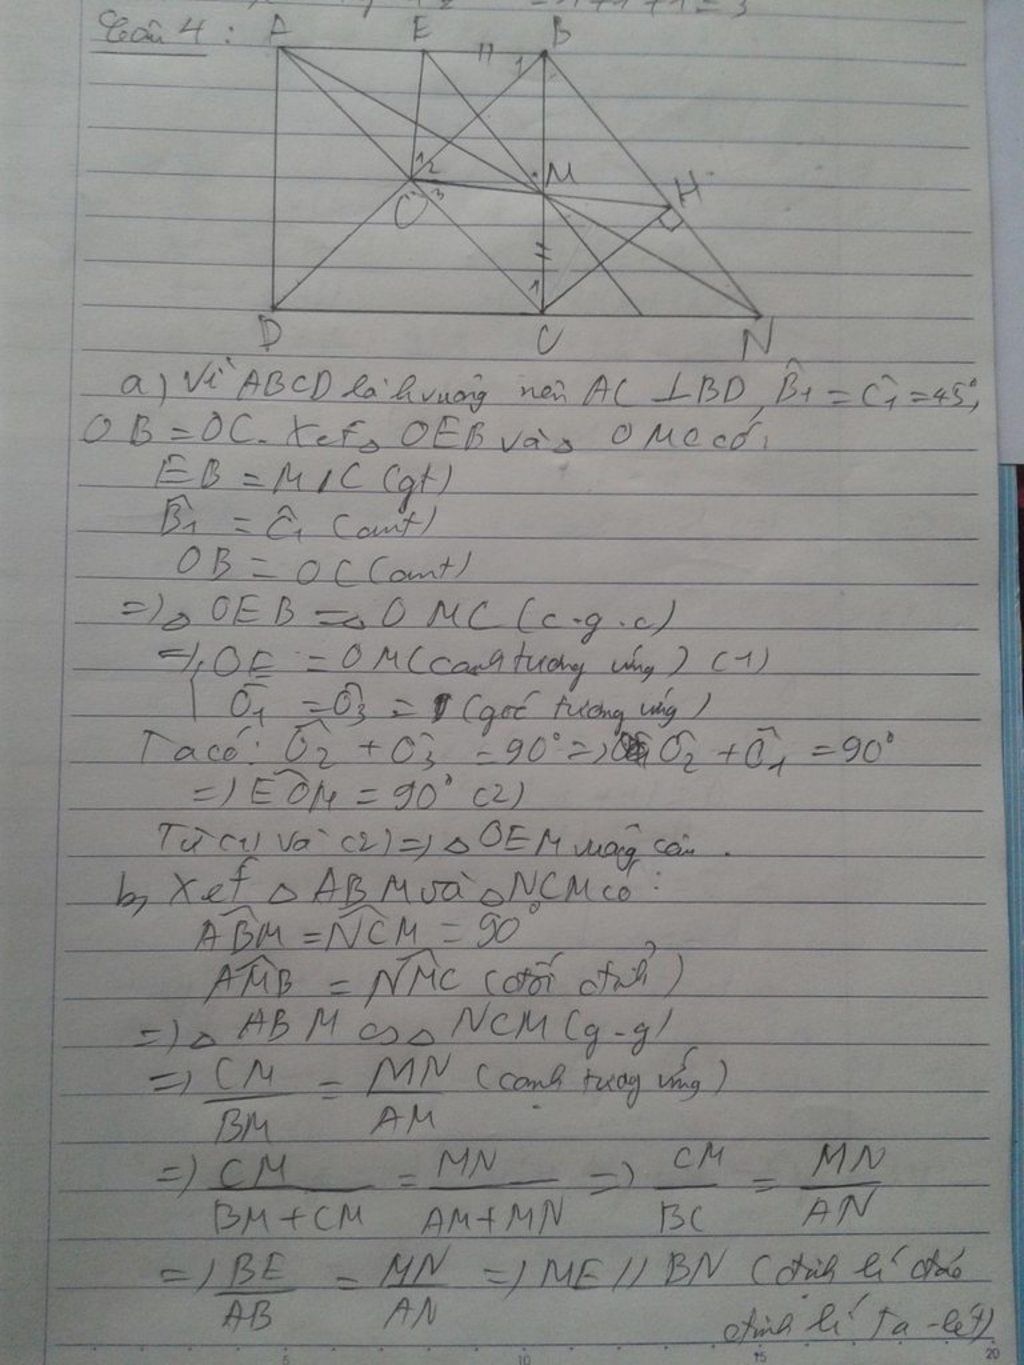 = 1+1+1 = 3
Câu 4 :
A E B
1
1 2 M H
O 3
1
D C N
a) Vì ABCD là h vuông nên AC ⊥ BD, B̂1 = Ĉ1 = 45°,
OB = OC. Xét △ OEB và △ OMC có:
EB = MC (gt)
B̂1 = Ĉ1 (cmt)
OB = OC (cmt)
=> △ OEB = △ OMC (c.g.c)
=> OE = OM (cạnh tương ứng) (1)
Ô1 = Ô3 = (góc tương ứng)
Ta có: Ô2 + Ô3 = 90° => Ô2 + Ô1 = 90°
=> EÔM = 90° (2)
Từ (1) và (2) => △ OEM vuông cân.
b, Xét △ ABM và △ NCM có:
AB̂M = NĈM = 90°
AM̂B = NM̂C (đối đỉnh)
=> △ ABM ∽ △ NCM (g-g)
=> CM/BM = MN/AM (cạnh tương ứng)
=> CM/BM+CM = MN/AM+MN => CM/BC = MN/AN
=> BE/AB = MN/AN => ME // BN (định lí đảo
định lí Ta-lét)
5 10 15 20